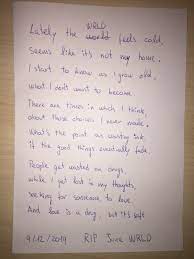 WRLD
Lately the world feels cold,
seems like it's not my home.
I start to know as I grow old,
what I don't want to become.
There are times in which I think,
about those choices I never made.
What's the point on wasting ink,
if the good things eventually fade.
People get wasted on drugs,
while I get lost in my thoughts,
seeking for someone to love.
And love is a drug, but it's safe
9/12/2019 RIP Juice WRLD